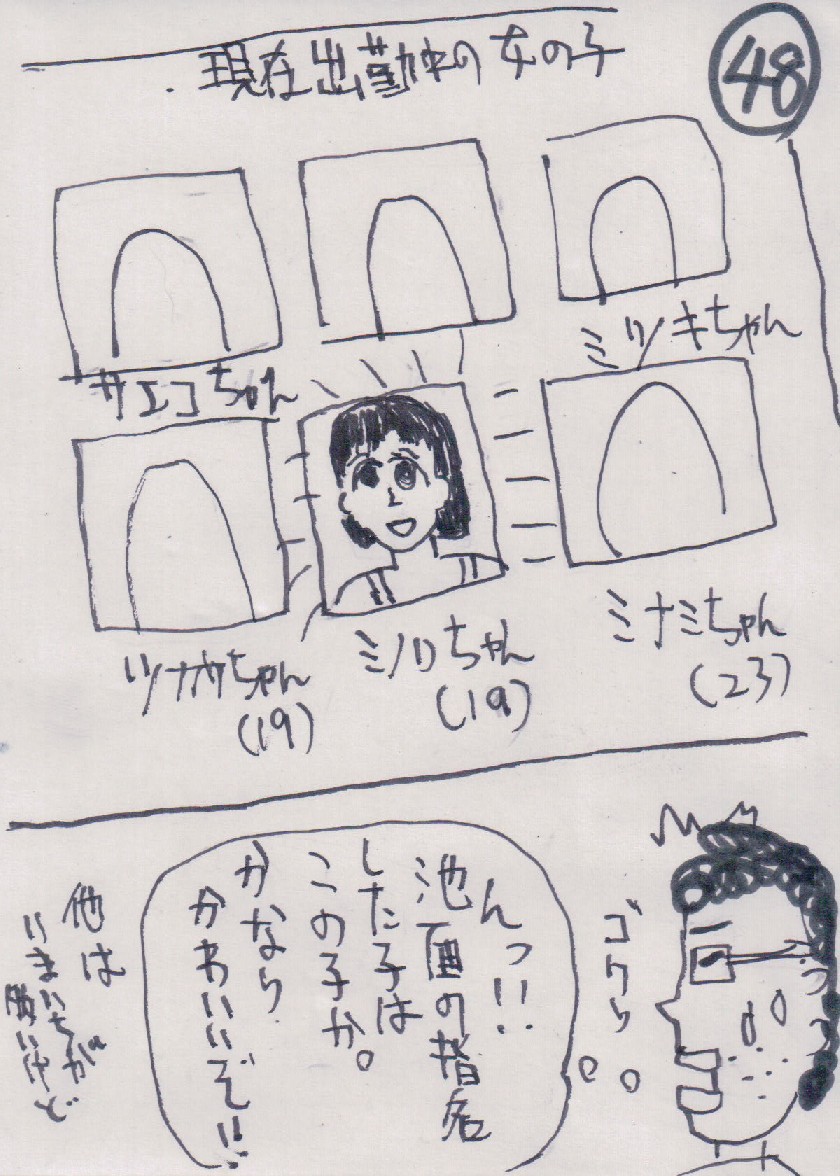 現在出勤中の女の子
48
サエコちゃん
ミヅキちゃん
ツナガちゃん
(19)
ミノリちゃん
(19)
ミナミちゃん
(23)
ゴクッ
んっ!!
池面の指名
した子は
この子か。
かなり
かわいいぞ!!
他は
いまいちが
多いけど